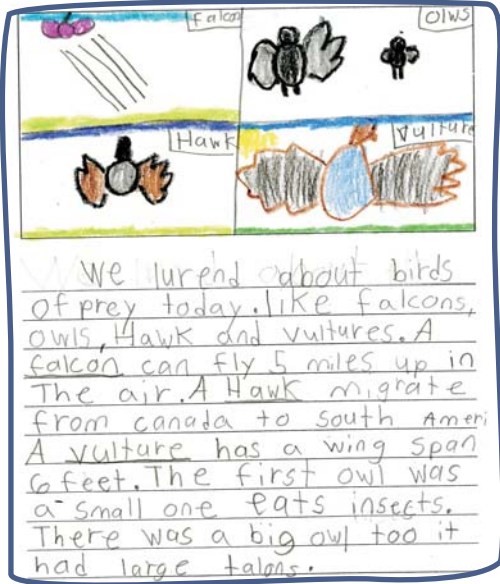 falcon
Olws
Hawk
Vulture
We lurend about birds
of prey today. like falcons,
owls, Hawk and vultures. A
falcon can fly 5 miles up in
The air. A Hawk migrate
from canada to south Ameri
A vulture has a wing span
6 feet. The first owl was
a small one eats insects.
There was a big owl too it
had large talons.